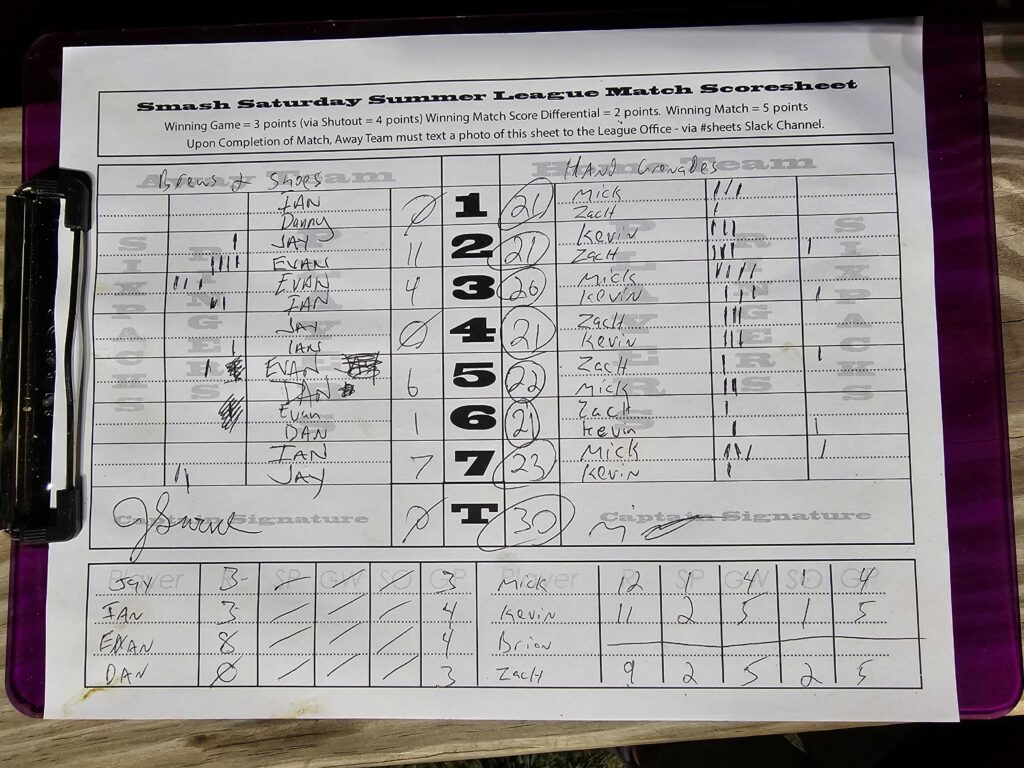 Smash Saturday Summer League Match Scoresheet
Winning Game = 3 points (via Shutout = 4 points) Winning Match Score Differential = 2 points. Winning Match = 5 points
Upon Completion of Match, Away Team must text a photo of this sheet to the League Office - via #sheets Slack Channel.
Away Team Home Team
Brews & Shoes HAND Grenades
IAN Ø 1 21 Mick III
Danny Zach I
I JAY 11 2 21 Kevin III
IIII EVAN Zach III I
III EVAN 4 3 Mick IIII
II IAN Kevin III I
JAY Ø 4 21 Zach III
I IAN Kevin III
I EVAN 6 5 22 Zach I I
DAN Mick II
Evan 1 6 21 Zach I
DAN Kevin I I
IAN 7 7 23 Mick III I
II JAY Kevin I
SIXPACKS RINGERS PLAYERS PLAYERS RINGERS SIXPACKS
Captain Signature Ø T 30 Captain Signature
Player R SP GW SO GP Player R SP GW SO GP
JAY 3 / / / 3 Mick 12 1 4 1 4
IAN 3 / / / 4 Kevin 11 2 5 1 5
EVAN 8 / / / 4 Brian
DAN Ø / / / 3 Zach 9 2 5 2 5